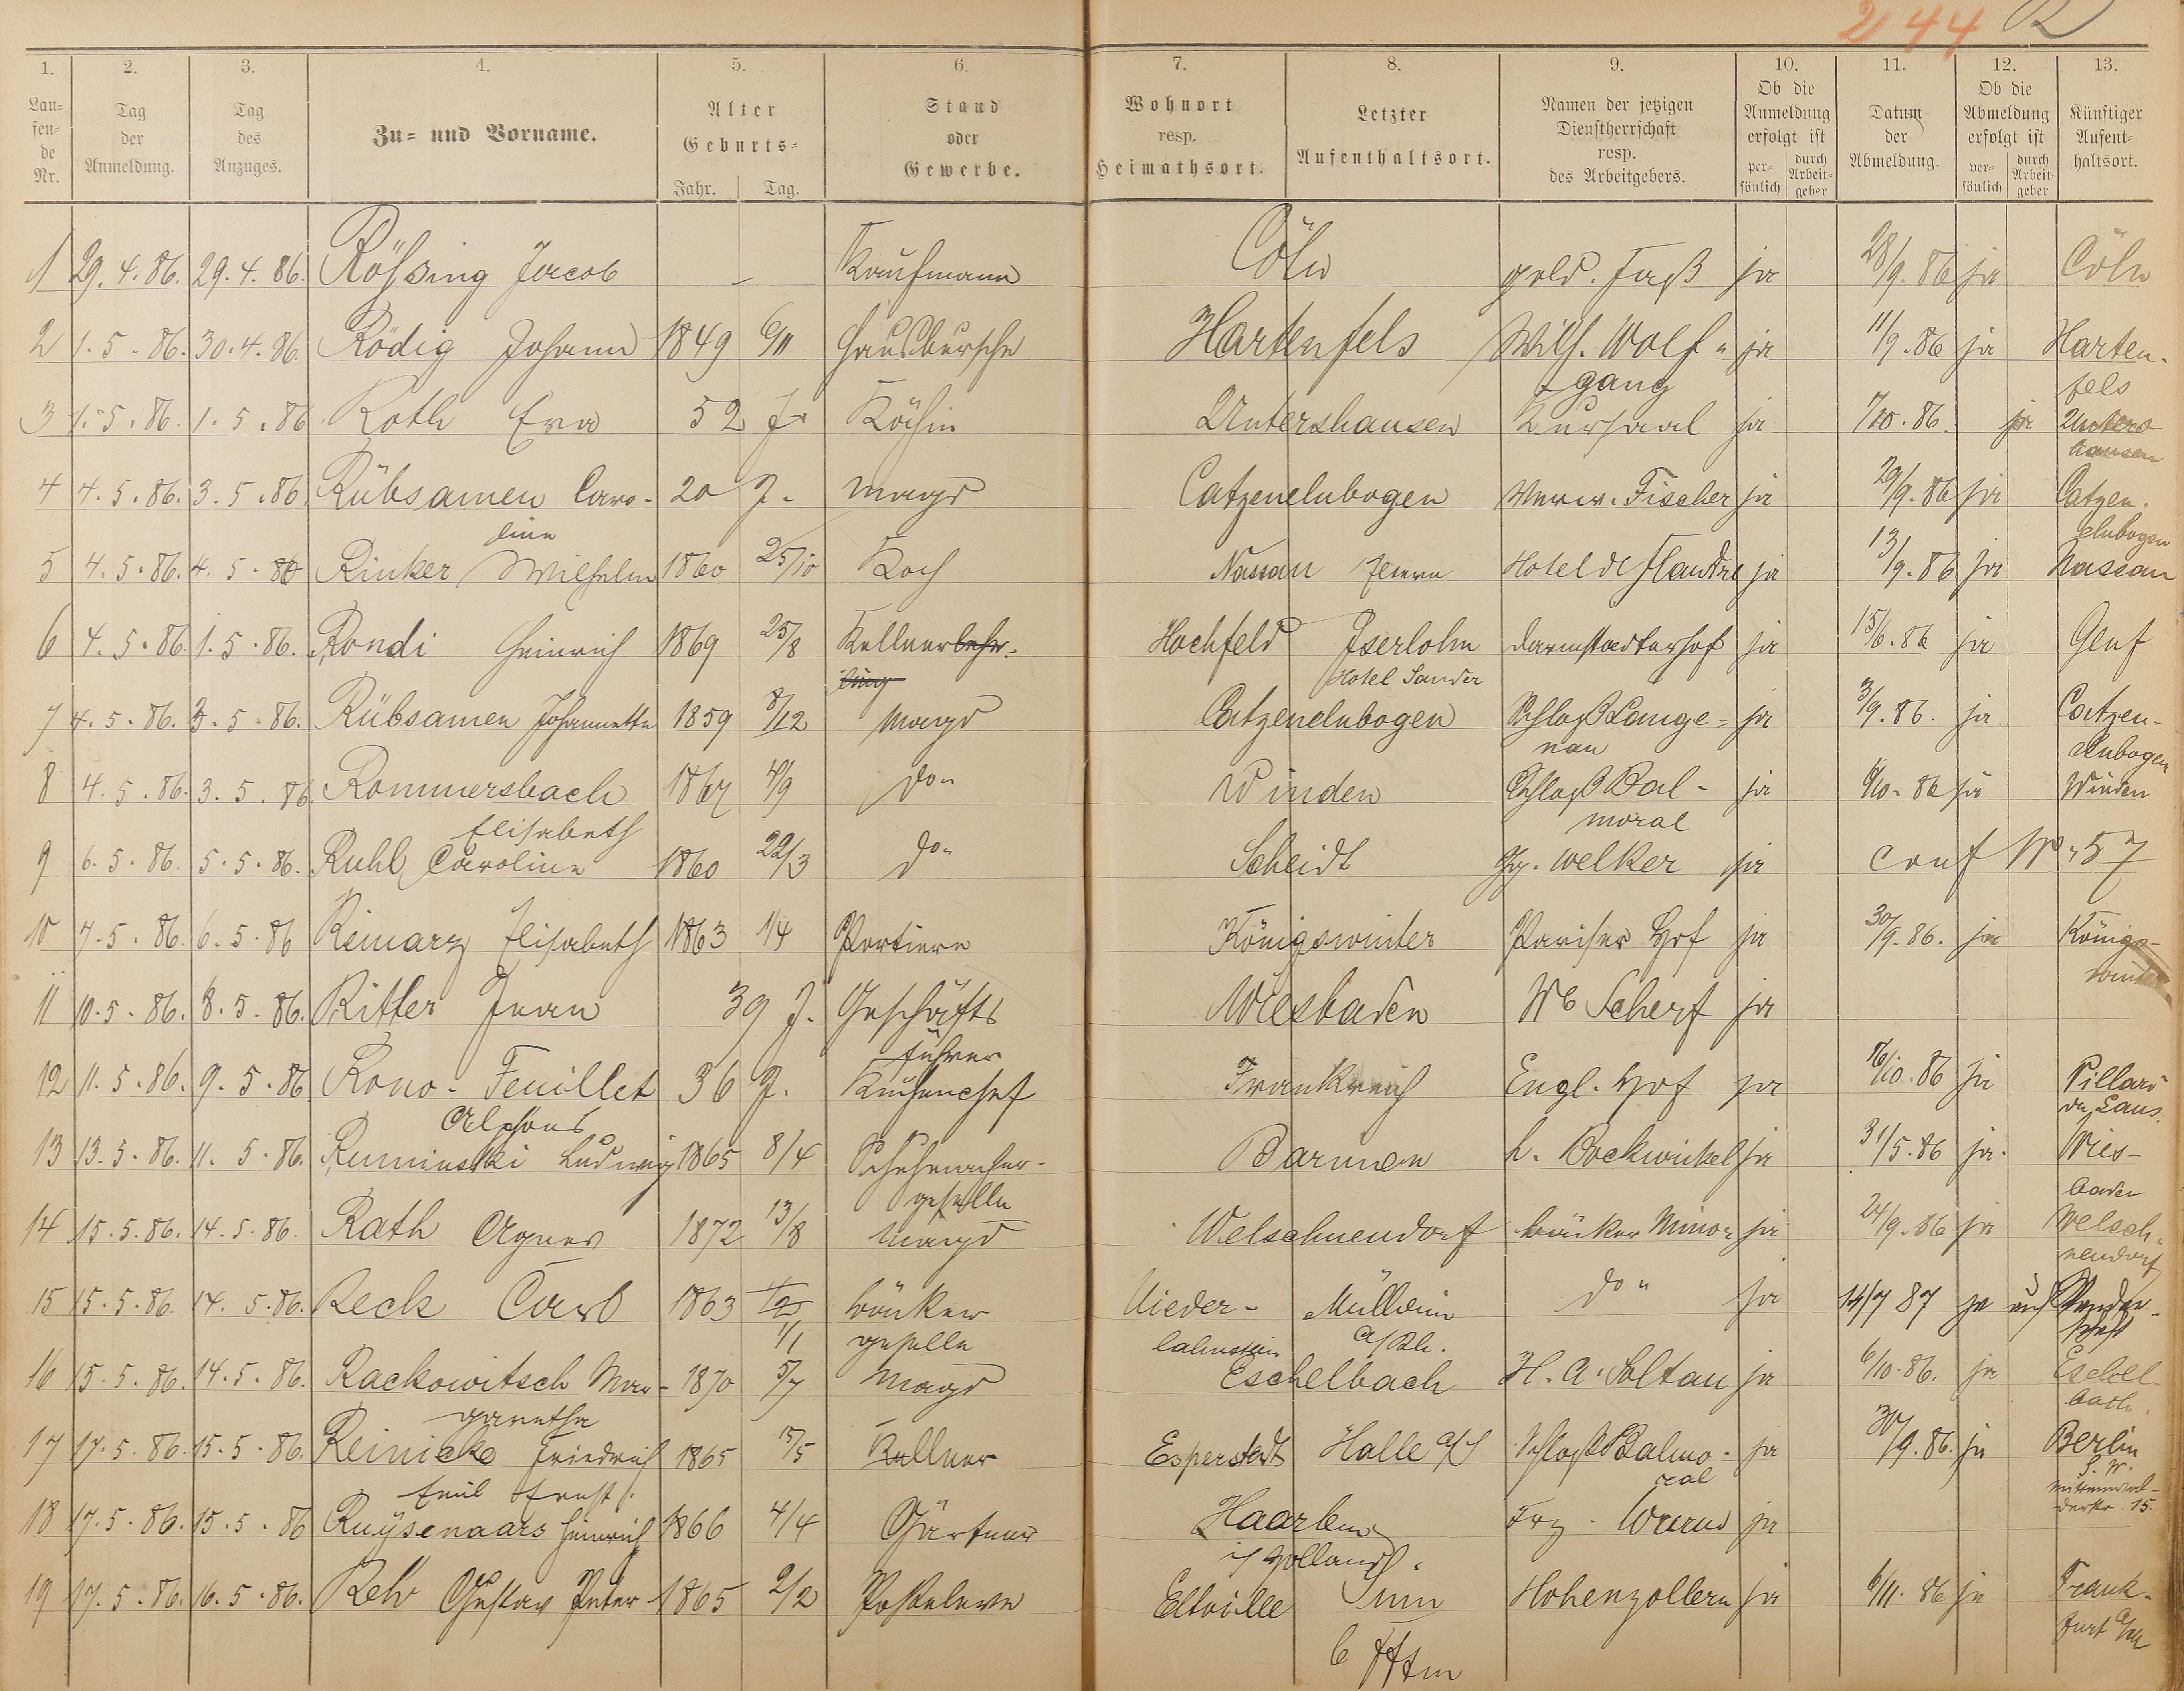 244 R
1. 2. 3. 4. 5. 6. 7. 8. 9. 10. 11. 12. 13.
Lau-
fen-
de
Nr.
Tag
der
Anmeldung.
Tag
des
Anzuges.
Zu- und Vorname.
Alter
Geburts-
Jahr. Tag.
Stand
oder
Gewerbe.
Wohnort
resp.
Heimathsort.
Letzter
Aufenthaltsort.
Namen der jetzigen
Dienstherrschaft
resp.
des Arbeitgebers.
Ob die
Anmeldung
erfolgt ist
per-
sönlich
durch
Arbeit-
geber
Datum
der
Abmeldung.
Ob die
Abmeldung
erfolgt ist
per-
sönlich
durch
Arbeit-
geber
Künftiger
Aufent-
haltsort.
1 29.4.86. 29.4.86. Jacob - Kaufmann Cöln gold. Faß ja 28/9.86 ja Cöln
2 1.5.86. 30.4.86. Rödig Johann 1849 6/11 Hausbursche Hartenfels Wilh. Wolf- ja 11/9.86 ja Harten-
gang fels
3 1.5.86. 1.5.86 Roth Eva 52 J. Köchin Untershausen Kursaal ja 7/10.86. ja Unters-
hausen
4 4.5.86. 3.5.86 Rübsamen Caro- 20 J. Magd Catzenelnbogen Fischer ja 29/9.86 ja Catzen-
line elnbogen
5 4.5.86. 4.5.86 Rinker Wilhelm 1860 25/10 Koch Nassau Hotel de Flandre ja 13/9.86 ja Nassau
6 4.5.86. 1.5.86. Rondi Heinrich 1869 25/8 Kellnerlehr- Hochfeld Iserlohn Darmstadterhof ja 15/6.86 ja Genf
ling Hotel Sander
7 4.5.86. 3.5.86. Rübsamen Johannette 1859 8/12 Magd Catzenelnbogen Schloß Lange- ja 3/9.86. ja Catzen-
nau elnbogen
8 4.5.86. 3.5.86. Rommersbach 1867 4/9 do" Winden Schloß Bal- ja 6/10.86 ja Winden
Elisabeth moral
9 6.5.86. 5.5.86. Ruhl Caroline 1860 22/3 do" Scheidt Welker ja conf No 57
10 7.5.86. 6.5.86 Remarz Elisabeth 1863 1/4 Portiere Königswinter Pariser Hof ja 30/9.86. ja Königs-
winter
11 10.5.86. 8.5.86. Ritter Jean 39 J. Geschäfts Wiesbaden Scherf ja
führer
12 11.5.86. 9.5.86 Rono-Feuillet 36 J. Küchenchef Frankreich Engl. Hof ja 16/10.86 ja
Alphons
13 13.5.86. 11.5.86. Ruminski Ludwig 1865 8/4 Schuhmacher- Barmen L. Bockwinkel ja 31/5.86 ja. Wies-
geselle baden
14 15.5.86. 14.5.86. Rath Agnes 1872 13/8 Magd Welschneudorf Bäcker Minor ja 24/9.86 ja Welsch-
neudorf
15 15.5.86. 14.5.86. Reck Carl 1863 Bäcker Nieder- Mülheim do" ja 14/7 87 ja auf Wander-
1/1 geselle lahnstein a/Rh. schaft
16 15.5.86. 14.5.86. Rackowitsch Mar- 1870 5/7 Magd Eschelbach H. A. Soltau ja 6/10.86. ja Eschel-
garetha bach.
17 17.5.86. 15.5.86. Reinicke Friedrich 1865 15/5 Kellner Esperstedt Halle a/S Schloß Balmo- ja 30/9.86. ja Berlin
Emil Ernst ral S.W.
15.
18 17.5.86. 15.5.86 Ruÿsenaars Heinrich 1866 4/4 Gärtner Haarlem Frz. ja
i/ Holland.
19 17.5.86. 16.5.86. Rehr Gustav Peter 1865 2/2 Posteleve Eltville Hohenzollern ja 6/11.86 ja Frank-
furt a/M